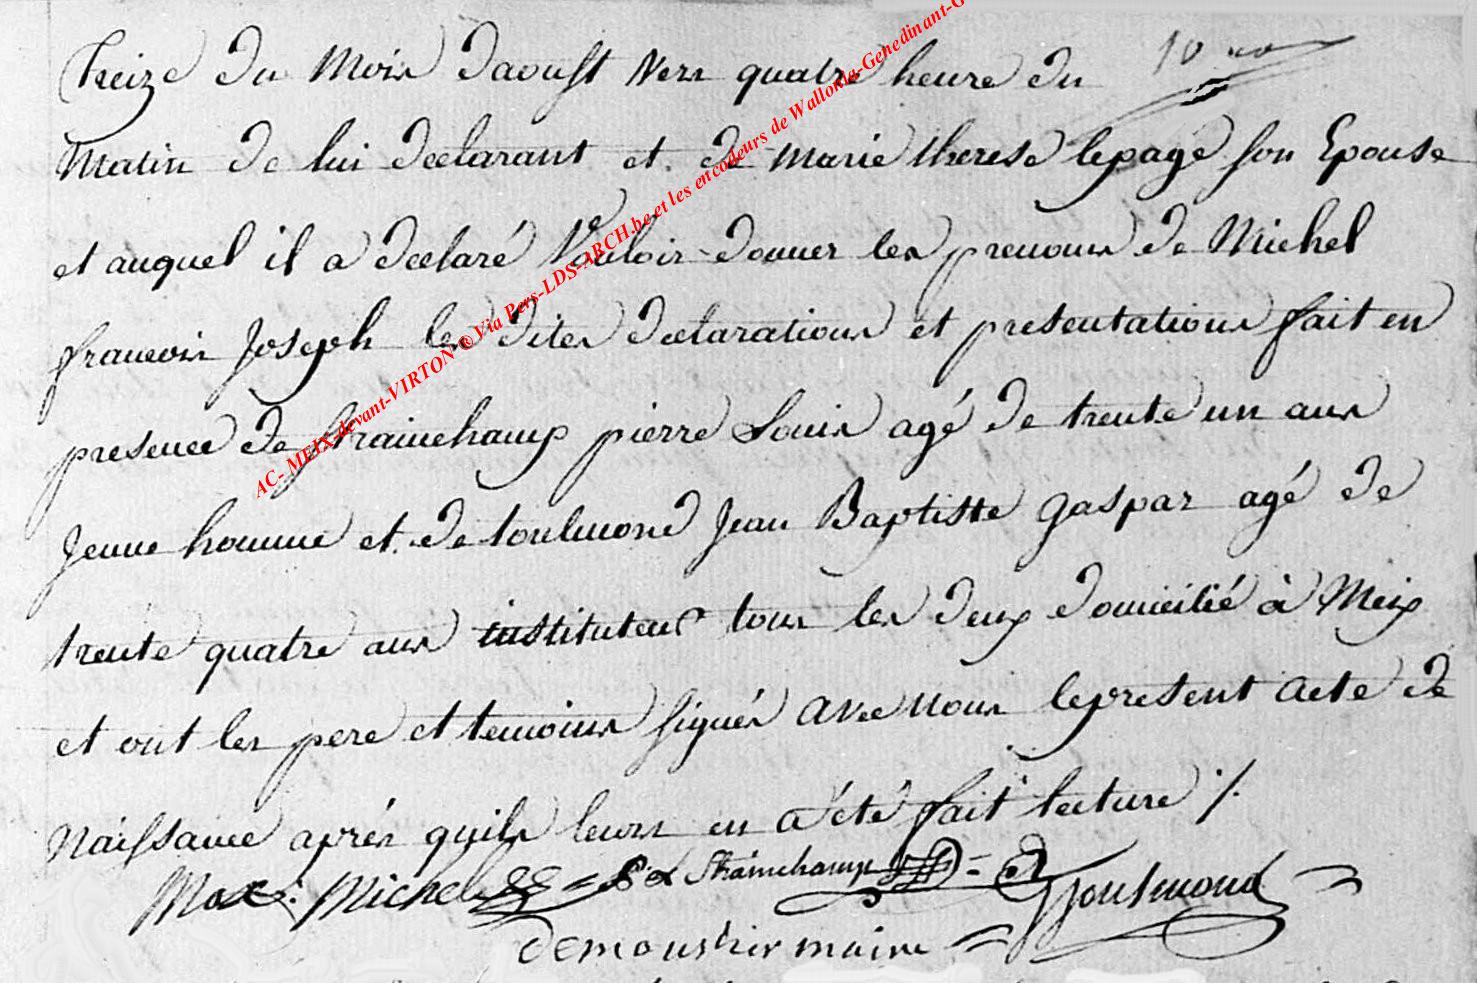 treize du Mois daoust vers quatre heure du
Matin de lui declarant et de marie therese lepage son Epouse
et auquel il a declaré Vouloir donner les prenoms de Michel
francois Joseph les dites declarations et presentations fait en
presence de strainchamp pierre Louis agé de trente un ans
Jeune homme et de toulmond Jean Baptiste gaspar agé de
trente quatre ans instituteur tous les deux domicilié à Meix
et ont les pere et temoins signés avec nous lepresent acte de
Naissance après quils leurs en a été fait lecture ./.
Max: Michel Strainchamp JJ Toulmond
demoustier maire
AC- MEIX-devant-VIRTON © Via Pers-LDS-ARCH.be et les encodeurs de Wallonia-Genedinant-G